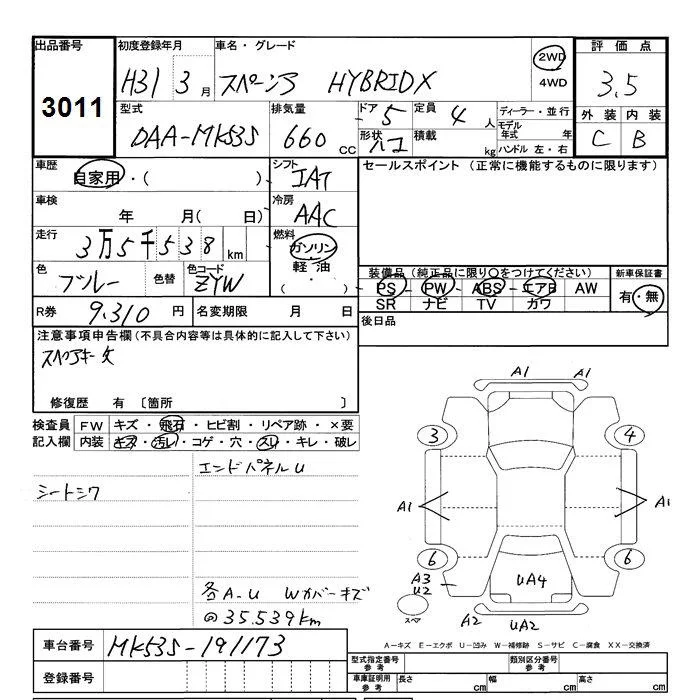 出品番号 初度登録年月 車名・グレード 評価点
3011 H31 3月 スペーシア HYBRID X 2WD 3.5
4WD
型式 排気量 ドア 定員 ディーラー・並行 外装 内装
DAA-MK53S 660 CC 5 4人 モデル年式 年 C B
形状 ハコ 積載 kg ハンドル 左・右
車歴 自家用・( ) シフト IAT セールスポイント (正常に機能するものに限ります)
車検 年 月( 日) 冷房 AAC
走行 3万5千538km 燃料 ガソリン
軽油
( )
色 ブルー 色替 色コード ZYW 装備品(純正品に限り○をつけてください) 新車保証書
PS PW ABS エアB AW 有・無
SR ナビ TV カワ
R券 9,310円 名変期限 月 日 後日品
注意事項申告欄(不具合内容等は具体的に記入して下さい)
スペアキー欠
修復歴 有 〔箇所 〕
検査員記入欄 FW キズ・飛石・ヒビ割・リペア跡・×要
内装 キズ・汚レ・コゲ・穴・スレ・キレ・破レ
エンドパネルU
シートシワ
各A-U Wカバーキズ
@35,539km
A1 A1
3 4
A1 A1
6 6
A3
U2 UA4
スペア A2 UA2
A-キズ E-エクボ U-凹み W-補修跡 S-サビ C-腐食 XX-交換済
車台番号 MK53S-191173
登録番号
型式指定番号 参考 類別区分番号 参考
車庫証明用 参考 長さ cm 幅 cm 高さ cm